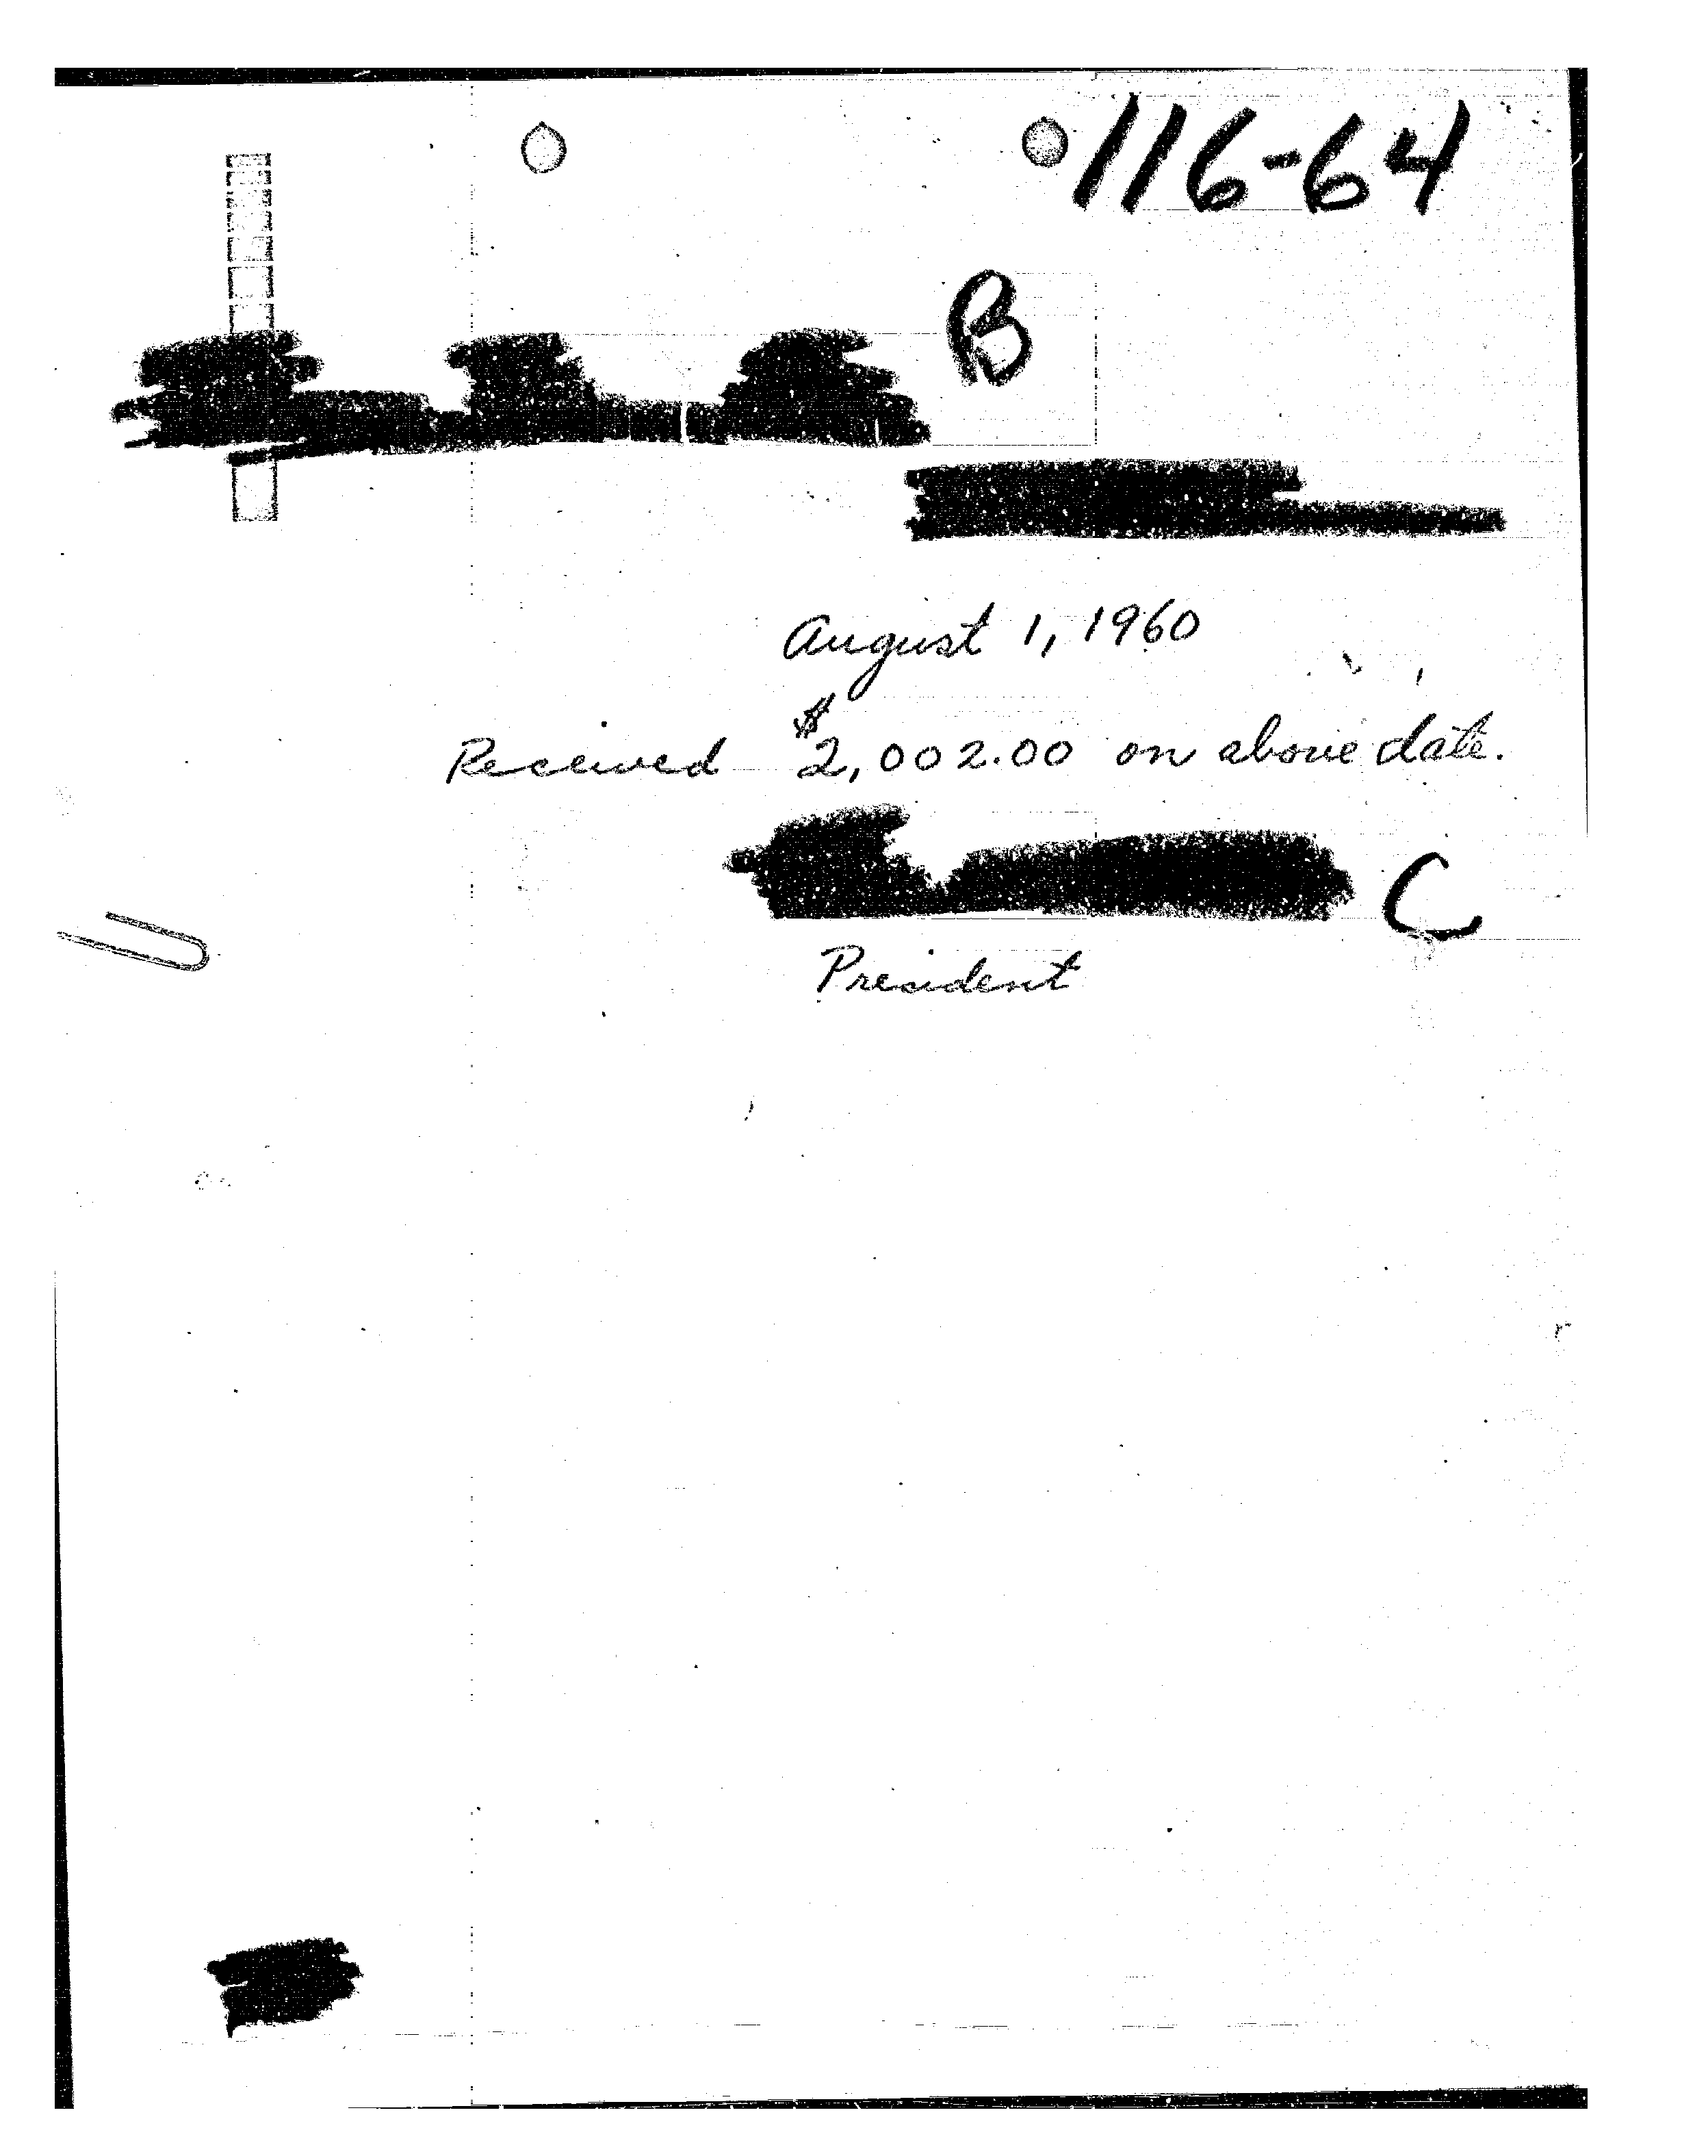 116-64
B
August 1, 1960
Received $2,002.00 on above date.
C
President